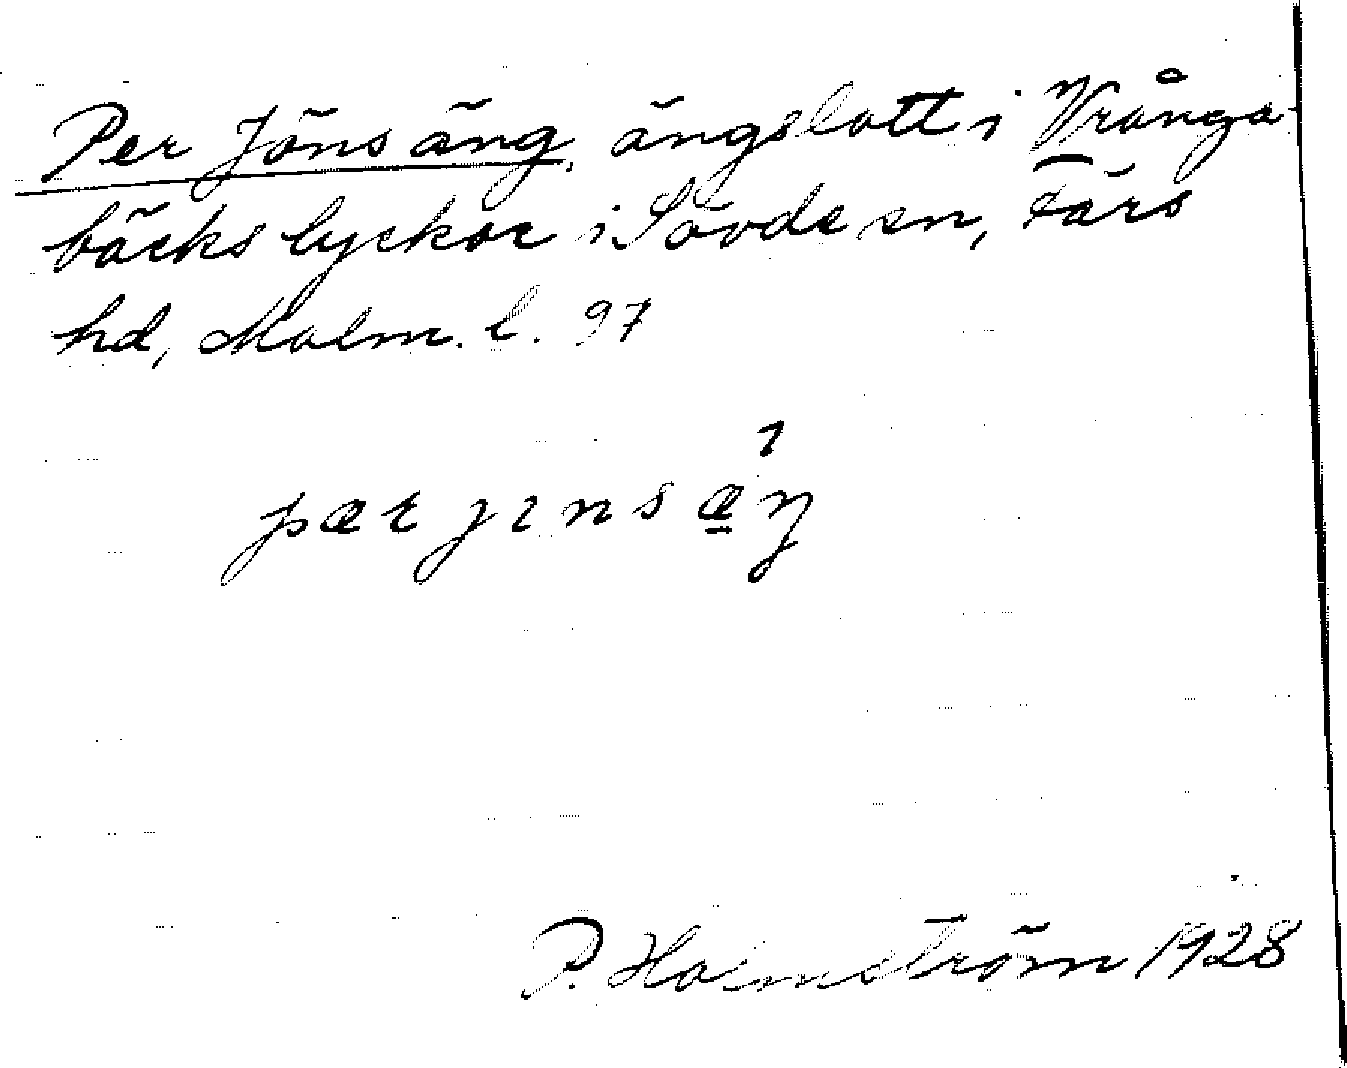 Per Jöns äng, ängslott i Vränga-
bäcks lyckor i Sövde sn, Färs
hd, Malm. l. 97
pær jens æ̱ŋ
P. Holmström 1928